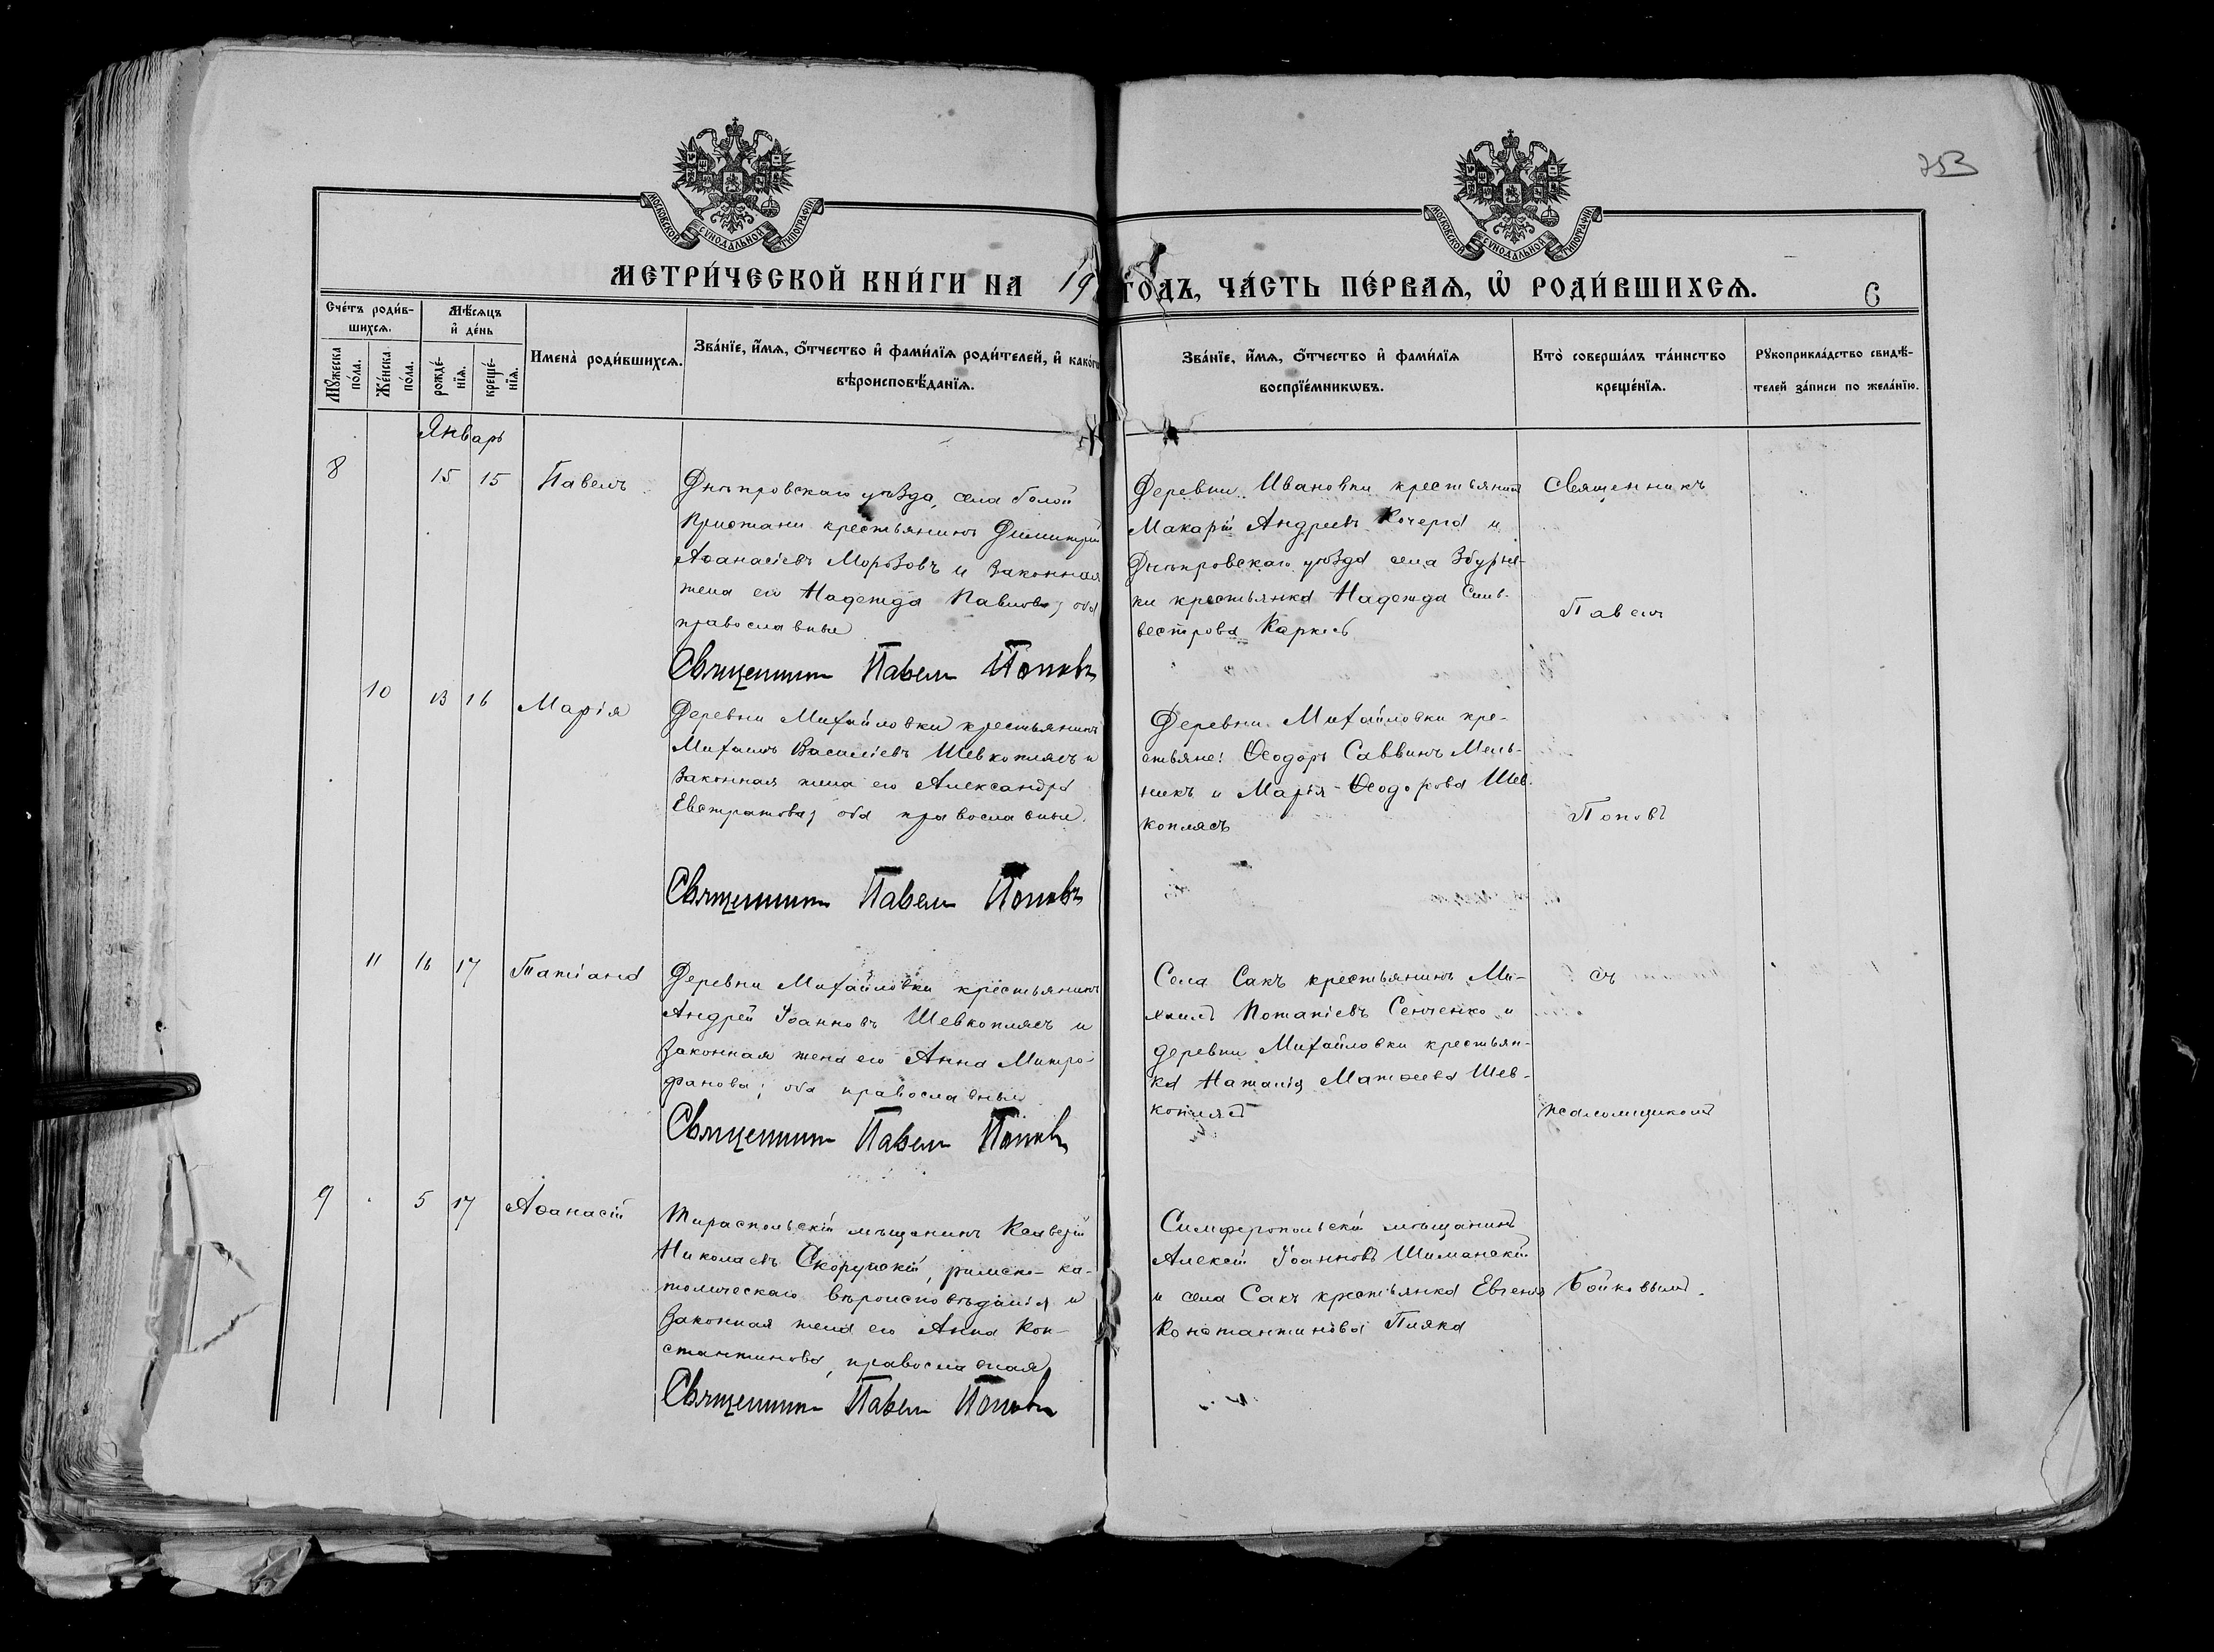 253
МОСКОВСКОЙ СУНОДАЛЬНОЙ ТИПОГРАФІИ
МОСКОВСКОЙ СУНОДАЛЬНОЙ ТИПОГРАФІИ
МЕТРИ́ЧЕСКОЙ КНИ́ГИ НА 19 ГО́ДЪ, ЧА́СТЬ ПЕ́РВАѦ, Ѡ҆ РОДИ́ВШИХСѦ.
6
Сче́тъ роди́в-
шихсѧ.
Мꙋ́жеска по́ла.
Же́нска по́ла.
Мѣ́сѧцъ
и҆ де́нь
рожде́-
нїѧ.
креще́-
нїѧ.
Имена̀ роди́вшихсѧ.
Зва́нїе, и҆́мѧ, ѻ҆́тчество и҆ фами́лїѧ роди́телей, и҆ како́гѡ
вѣроисповѣ́данїѧ.
Зва́нїе, и҆́мѧ, ѻ҆́тчество и҆ фами́лїѧ
воспрїе́мникѡвъ.
Кто̀ соверша́лъ та́инство
креще́нїѧ.
Рꙋкоприкла́дство свидѣ́-
телей за́писи по жела́нїю.
Январь
8
15 15
Павелъ
Днѣпровскаго уѣзда, села Голой
Пристани крестьянинъ Димитрій
Аѳанасіевъ Морозовъ и законная
жена его Надежда Павлова, оба
православные
Священникъ Павелъ Поповъ
Деревни Ивановки крестьянинъ
Макарій Андреевъ Кочерга и
Днѣпровскаго уѣзда села Збурьев-
ки крестьянка Надежда Силь-
вестрова
Священникъ
Павелъ
10 13 16
Марія
Деревни Михайловки крестьянинъ
Михаилъ Василіевъ Шевкоплясъ и
законная жена его Александра
Евстратова, оба православные.
Священникъ Павелъ Поповъ
Деревни Михайловки кре-
стьяне: Ѳеодоръ Саввинъ Мель-
никъ и Марія Ѳеодорова Шев-
коплясъ
Поповъ
11 16 17
Татіана
Деревни Михайловки крестьянинъ
Андрей Іоанновъ Шевкоплясъ и
законная жена его Анна Митро-
фанова; оба православные
Священникъ Павелъ Поповъ
Села Сакъ крестьянинъ Ми-
хаилъ Потапіевъ Сенченко и
деревни Михайловки крестьян-
ка Наталія Матѳеева Шев-
коплясъ
съ
псаломщикомъ
9 5 17
Аѳанасій
Тираспольскій мѣщанинъ Ксаверій
Николаевъ Скорупскій, римско-ка-
толическаго вѣроисповѣданія и
законная жена его Анна Кон-
стантинова, православная
Священникъ Павелъ Поповъ
Симферопольскій мѣщанинъ
Алексій Іоанновъ Шиманскій
и села Сакъ крестьянка Евгенія
Константинова Пляка
Бойковымъ.